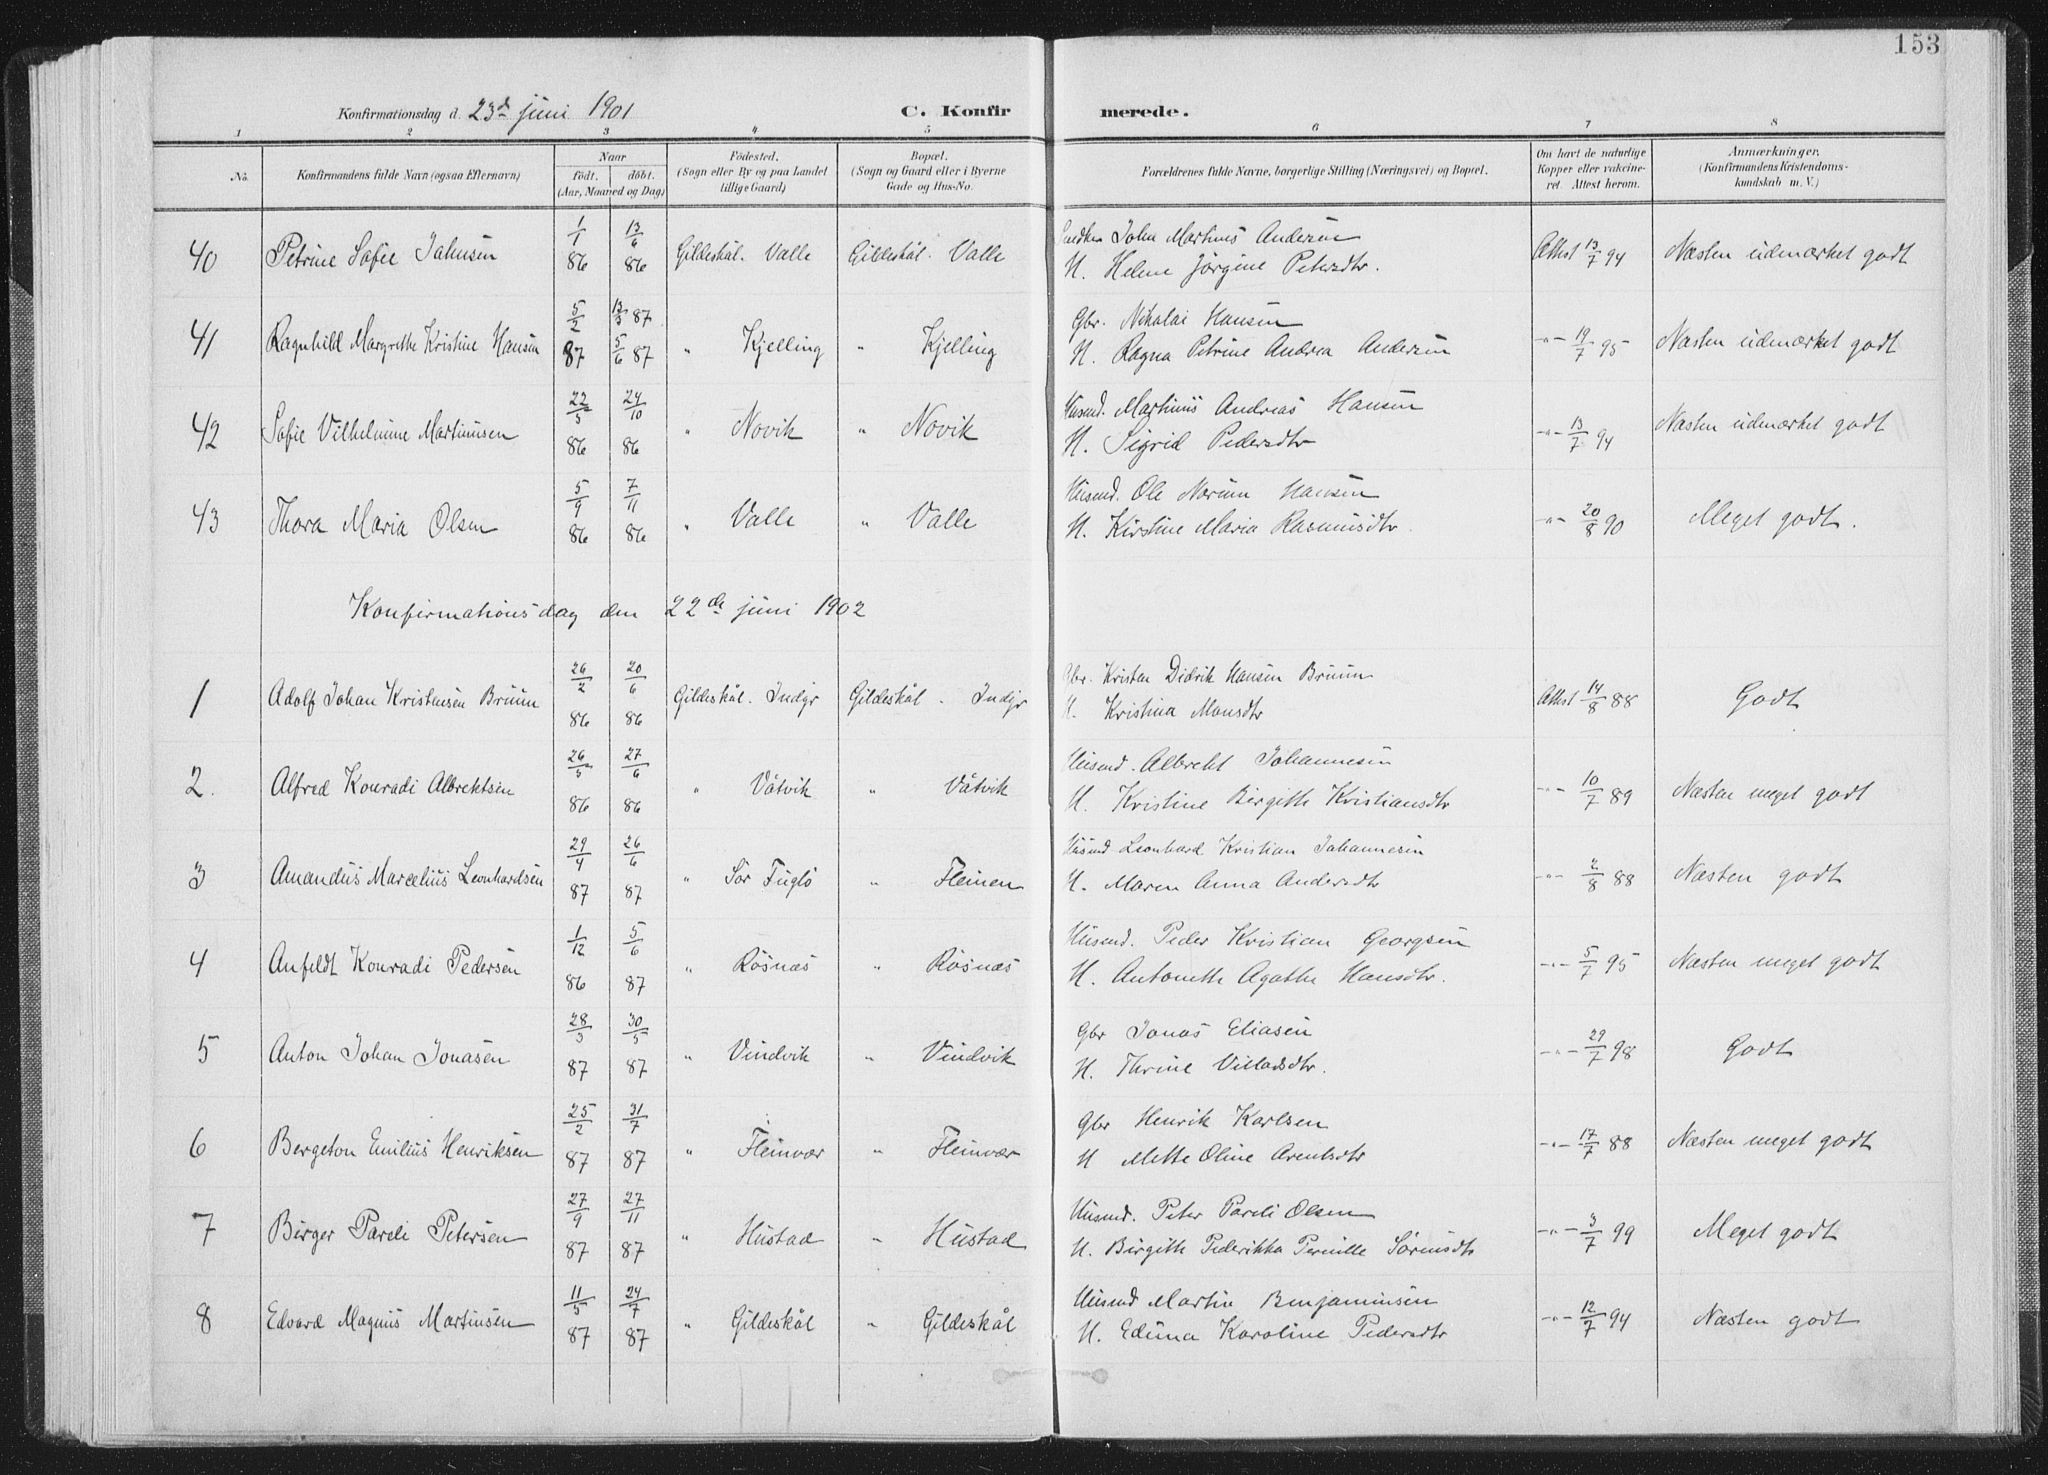 153
Konfirmationsdag d. 23de juni 1901 C. Konfirmerede.
1 2 3 4 5 6 7 8
No. Konfirmandens fulde Navn (ogsaa Efternavn) Naar født. døbt. (Aar, Maaned og Dag) Fødested. (Sogn eller By og paa Landet tillige Gaard) Bopæl. (Sogn og Gaard eller i Byerne Gade og Hus-No. Forældrenes fulde Navne, borgerlige Stilling (Næringsvei) og Bopæl. Om havt de naturlige Kopper eller vakcineret. Attest herom. Anmærkninger. (Konfirmandens Kristendomskundskab m. V.)
40 Petrine Sofie Jahnsen 1/1 86 13/6 86 Gildeskål. Valle Gildeskål. Valle John Martinus Andersen
H. Helene Jørgine Petersdtr. Attest 13/7 94 Næsten udmærket godt
41 Ragnhild Margrethe Kristine Hansen 5/2 87 13/3 87 5/6 87 " Kjelling " Kjelling Gbr. Nikolai Hansen
H. Ragna Petrine Andrea Andersen -"- 19/7 95 Næsten udmærket godt
42 Sofie Vilhelmine Martinusen 22/5 86 24/10 86 " Novik " Novik Husmd. Martinus Andreas Hansen
H. Sigrid Pedersdtr -"- 13/7 94 Næsten udmærket godt
43 Thora Maria Olsen 5/9 86 7/11 86 " Valle " Valle Husmd. Ole Norum Hansen
H. Kirstine Maria Rasmusdtr. -"- 20/8 90 Meget godt.
Konfirmationsdag den 22de juni 1902
1 Adolf Johan Kristensen Bruun 26/2 86 20/6 86 Gildeskål. Indgr Gildeskål. Indgr Gbr. Kristen Didrik Hansen Bruun
H. Kristina Monsdtr Attest 14/8 88 Godt
2. Alfred Konradi Albrektsen 26/5 86 27/6 86 " Våtvik " Våtvik Husmd. Albrekt Johannesen
H. Kristine Birgitte Kristiansdtr -"- 10/7 89 Næsten meget godt
3 Amandus Marcelius Leonhardsen 29/4 87 26/6 87 " Sör Fuglö " Fleinen Husmd Leonhard Kristian Johannesen
H. Maren Anna Andersdtr -"- 2/8 88 Næsten godt
4 Anfeldt Konradi Pedersen 1/12 86 5/6 87 " Rösnæs " Rösnæs Husmd. Peder Kristian Georgsen
H. Antonette Agathe Hansdtr. -"- 5/7 95 Næsten meget godt
5 Anton Johan Jonasen 28/3 87 30/5 87 " Vindvik " Vindvik Gbr Jonas Eliasen
H. Thrine Villadsdtr. -"- 29/7 98 Godt
6 Bergeton Emilius Henriksen 25/2 87 31/7 87 " Fleinvær " Fleinvær Gbr Henrik Karlsen
H Mette Oline Arentsdtr -"- 17/7 88 Næsten meget godt
7 Birger Pareli Petersen 27/9 87 27/11 87 " Hustad " Hustad Husmd. Peter Pareli Olsen
H. Birgitte Pederikka Pernille Sörensdtr -"- 3/7 99 Meget godt
8 Edvard Magnus Martinsen 11/5 87 24/7 87 " Gildeskål " Gildeskål Husmd Martin Benjaminsen
H. Edina Karoline Pedersdtr -"- 12/7 94 Næsten godt